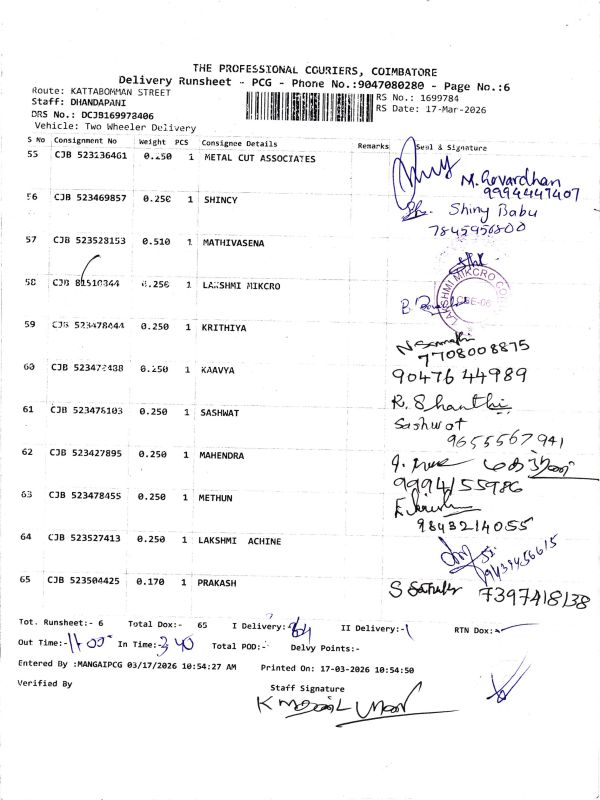 THE PROFESSIONAL COURIERS, COIMBATORE
Delivery Runsheet - PCG - Phone No.:9047080280 - Page No.:6
Route: KATTABOMMAN STREET
RS No.: 1699784
Staff: DHANDAPANI
RS Date: 17-Mar-2026
DRS No.: DCJB169978406
Vehicle: Two Wheeler Delivery
S No Consignment No Weight PCS Consignee Details Remarks Seal & Signature
55 CJB 523136461 0.250 1 METAL CUT ASSOCIATES
M. Govardhan
9994447407
56 CJB 523469857 0.250 1 SHINCY
Shiny Babu
7845956800
57 CJB 523528153 0.510 1 MATHIVASENA
58 CJB 0.250 1 LAKSHMI MIKCRO
LAKSHMI MIKCRO
59 CJB 523478644 0.250 1 KRITHIYA
7708008875
60 CJB 0.250 1 KAAVYA
90476 44989
61 CJB 523478103 0.250 1 SASHWAT
R. Shanthi
Sashwat
9655567941
62 CJB 523427895 0.250 1 MAHENDRA
9994155986
63 CJB 523478455 0.250 1 METHUN
9843214055
64 CJB 523527413 0.250 1 LAKSHMI ACHINE
65 CJB 523504425 0.170 1 PRAKASH
7397418138
Tot. Runsheet:- 6 Total Dox:- 65 I Delivery:- II Delivery:- RTN Dox:-
Out Time:- 11.00 In Time:- 3.40 Total POD:- Delvy Points:-
Entered By :MANGAIPCG 03/17/2026 10:54:27 AM Printed On: 17-03-2026 10:54:50
Verified By
Staff Signature